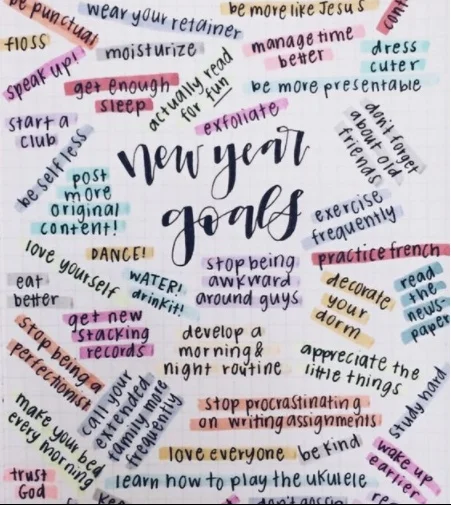 be punctual
wear your retainer
be more like Jesus
floss
moisturize
manage time
better
dress
cuter
speak up!
get enough
sleep
actually read
for fun
be more presentable
start a
club
exfoliate
don't forget
about old
friends
be self less
new year
goals
post
more
original
content!
exercise
frequently
love yourself
DANCE!
practice french
eat
better
WATER!
drink it!
stop being
awkward
around guys
decorate
your
dorm
read
the
news-
paper
get new
stacking
records
stop being a
perfectionist
develop a
morning &
night routine
appreciate the
little things
call your
extended
family more
frequently
study hard
make your bed
every morning
stop procrastinating
on writing assignments
love everyone
be kind
wake up
earlier
trust
God
learn how to play the ukulele
don't gossip